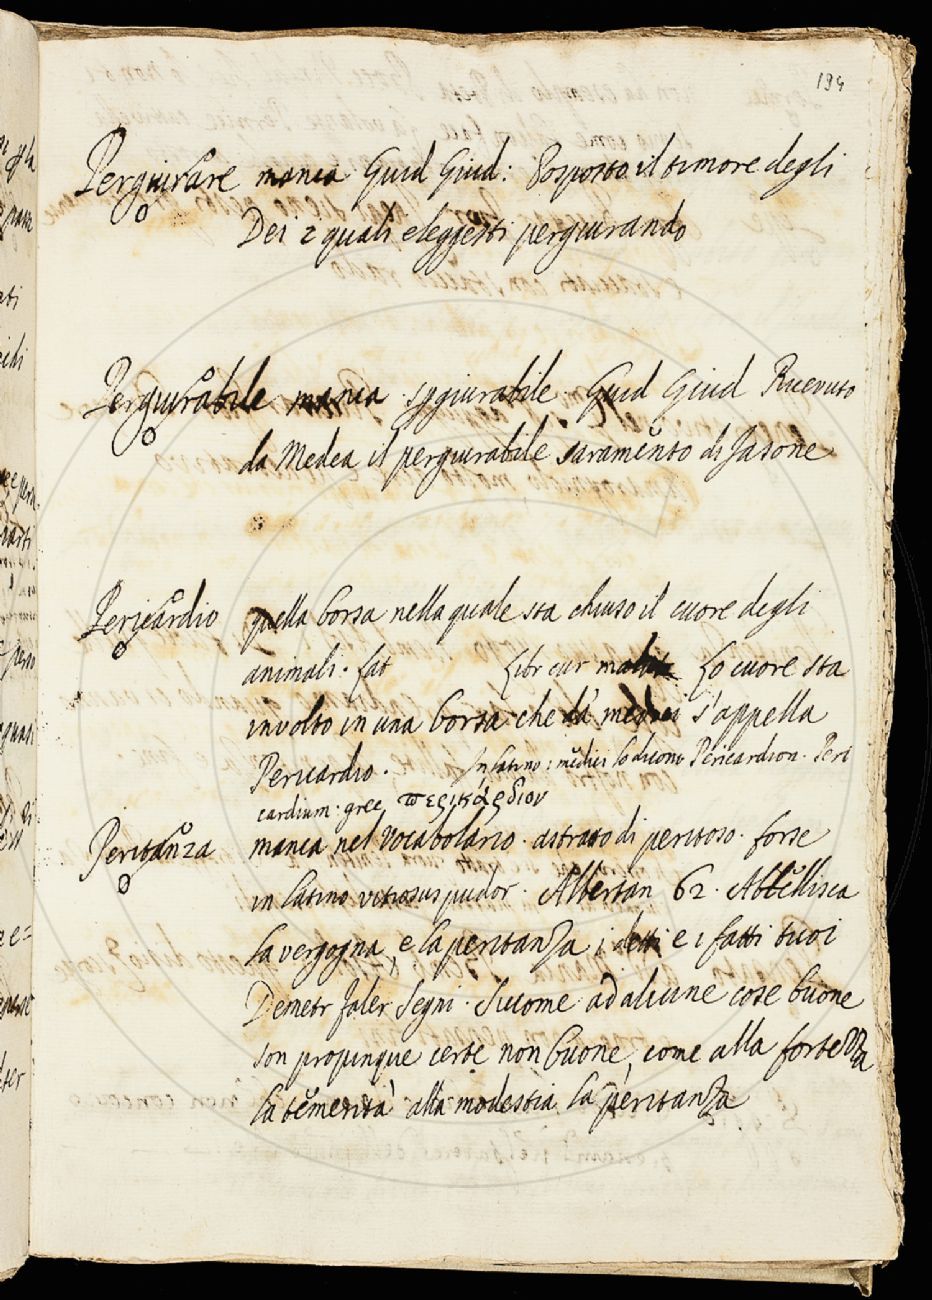 194
Pergiurare manca Guid Giud: Posposto il timore degli
Dei i quali eleggesti pergiurando
Pergiurabile manca spgiurabile. Guid Giud Ricevuto
da Medea il pergiurabile saramento di Jasone
Pericardio quella borsa nella quale sta chiuso il cuore degli
animali. Lat Libr cur malat Lo cuore sta
involto in una borsa che da' medici s'appella
Pericardio. In latino i medici lo dicono Pericardion. Peri
cardium. grec περικάρδιον
Peritanza manca nel Vocabolario. astratto di peritoso. forse
in latino vitiosus pudor. Albertan 62. Abbellisca
la vergogna, e la peritanza i detti e i fatti tuoi
Demetr faler Segni. Siccome ad alcune cose buone
son propinque certe non buone, come alla fortezza
la temerità alla modestia la peritanza